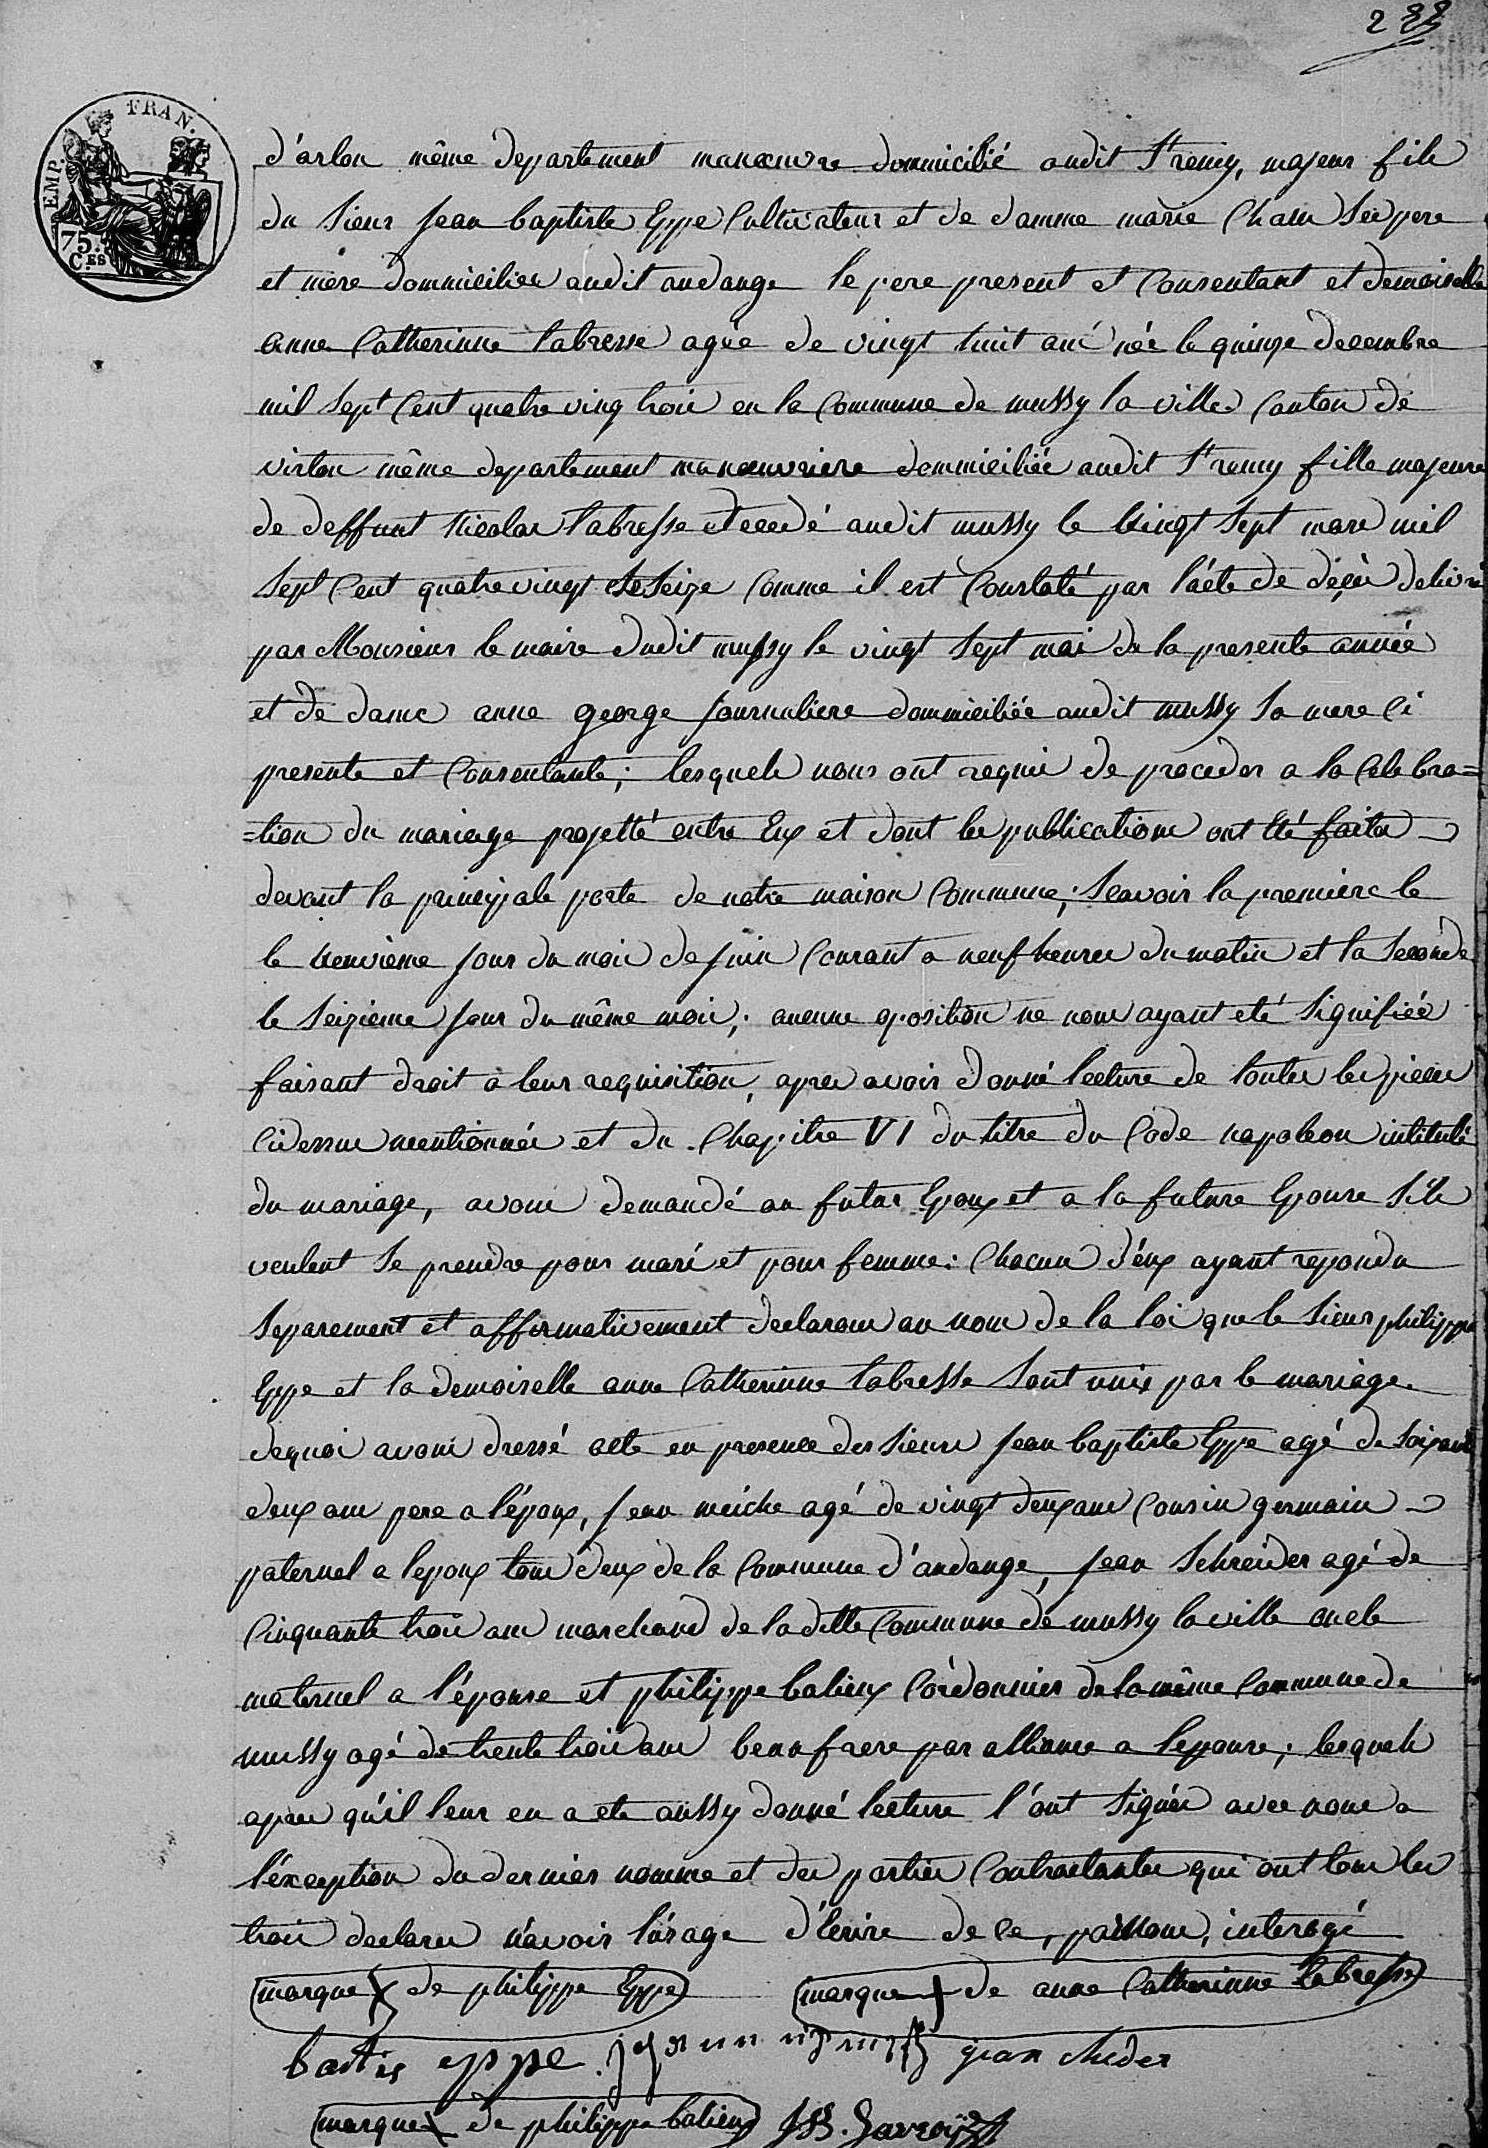 288
EMP. FRAN.
75. C.ES
d'arlon même departement manœuvre dommicilié audit St remy, majeur fils
du sieur jean baptiste Eppe Cultivateur et de damme marie Cham ses pere
et mere dommiciliés audit audange le pere present et Consentant et demoiselle
anne Catherinne labresse agée de vingt huit ans née le quinze decembre
mil sept Cent quatre ving trois en la Commune de mussy la ville Canton de
virton même departement manœuvriere dommiciliée audit St remy fille majeure
de deffunt Nicolas labresse decedé audit mussy le vingt sept mars mil
sept Cent quatre vingt seize Comme il est Constaté par l'acte de décès delivré
par Monsieur le maire dudit mussy le vingt sept mai de la presente année
et de dame anne george journaliere dommiciliée audit mussy sa mere Ci
presente et Consentante; lesquels nous ont requis de proceder a la Celebra=
=tion du mariage projetté entre Eux et dont les publications ont été faites
devant la principale porte de notre maison Commune; Scavoir la premiere le
le neuvième jour du mois de juin Courant a neuf heures du matin et la seconde
le seizieme jour du même mois; aucune oposition ne nous ayant eté signifiée
faisant droit à leur requisition, apres avoir donné lecture de toutes les pieces
Cidessus mentionnées et du Chapitre VI du titre du Code napoleon intitulé
du mariage, avons demandé au futur Epoux et a la future Epouse s'ils
veulent se prendre pour mari et pour femme: Chacun d'éux ayant repondu
separement et affirmativement declarons au nom de la loi que le sieur philippe
Eppe et la demoiselle anne Catherinne labresse sont unis par le mariage.
dequoi avons dressé acte en presence des sieurs jean baptiste Eppe agé de soixante
deux ans pere a l'époux, jean meiche agé de vingt deux ans Cousin germain
paternel a lepoux tous deux de la Commune d'audange, jean Schreider agé de
Cinquante trois ans marchand de laditte Commune de mussy la ville oncle
maternel a l'épouse et philippe balieux Cordonnier de la même Commune de
mussy agé de trente trois ans beau frere par alliance a lepouse; lesquels
apres qu'il leur en a ete aussy donné lecture l'ont signés avec nous a
l'éxception du dernier nommé et des parties Contractantes qui ont tous les
trois declarés n'avoir l'usage d'Ecrire de ce, par nous, interogé
marque X de philippe Eppe marque + de anne Catherinne labresse
bastis eppe jean chider
marque X de philippe balieux